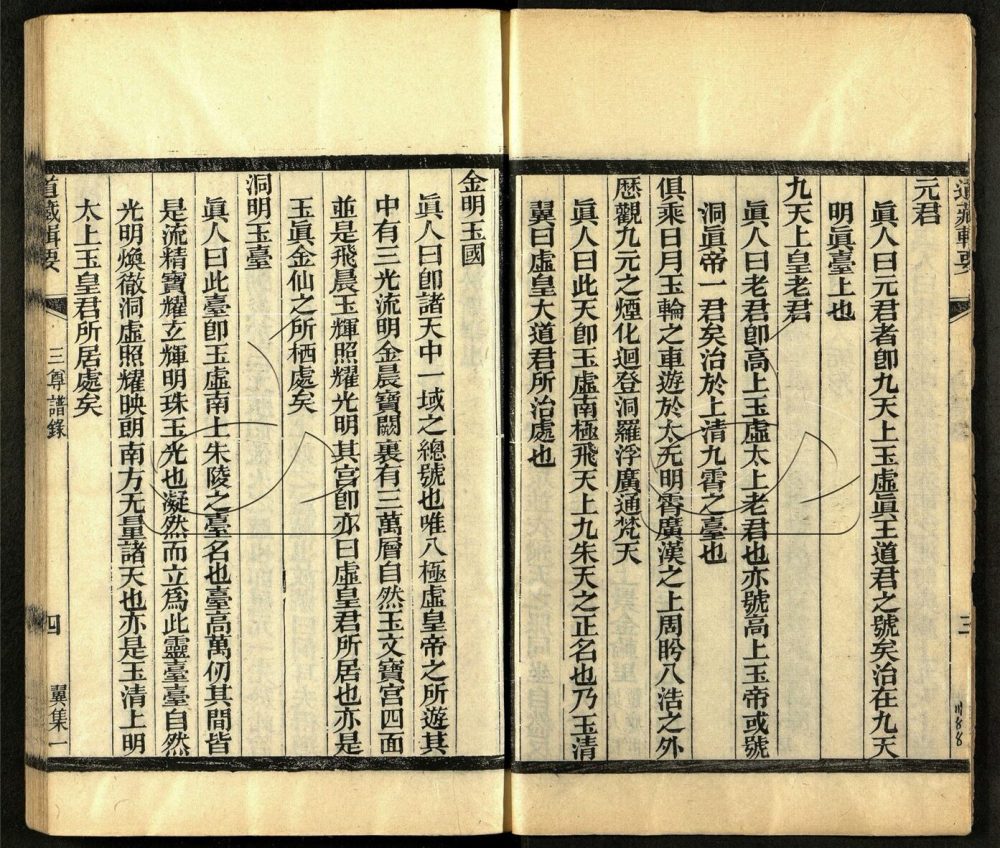 道藏輯要
三
元君
眞人曰元君者卽九天上玉虛眞王道君之號矣治在九天
明眞臺上也
九天上皇老君
眞人曰老君卽高上玉虛太上老君也亦號高上玉帝或號
洞眞帝一君矣治於上清九霄之臺也
俱乘日月玉輪之車遊於太无明霄廣漢之上周昤八浩之外
歷觀九元之煙化迴登洞羅浮廣通梵天
眞人曰此天卽玉虛南極飛天上九朱天之正名也乃玉清
翼曰虛皇大道君所治處也
金明玉國
眞人曰卽諸天中一域之總號也唯八極虛皇帝之所遊其
中有三光流明金晨寶闕裏有三萬層自然玉文寶宮四面
並是飛晨玉輝照耀光明其宮卽亦曰虛皇君所居也亦是
玉眞金仙之所栖處矣
洞明玉臺
眞人曰此臺卽玉虛南上朱陵之臺名也臺高萬仞其間皆
是流精寶耀玄輝明珠玉光也凝然而立爲此靈臺臺自然
光明煥徹洞虛照耀映朗南方无量諸天也亦是玉清上明
太上玉皇君所居處矣
道藏輯要
三尊譜錄
四
翼集一